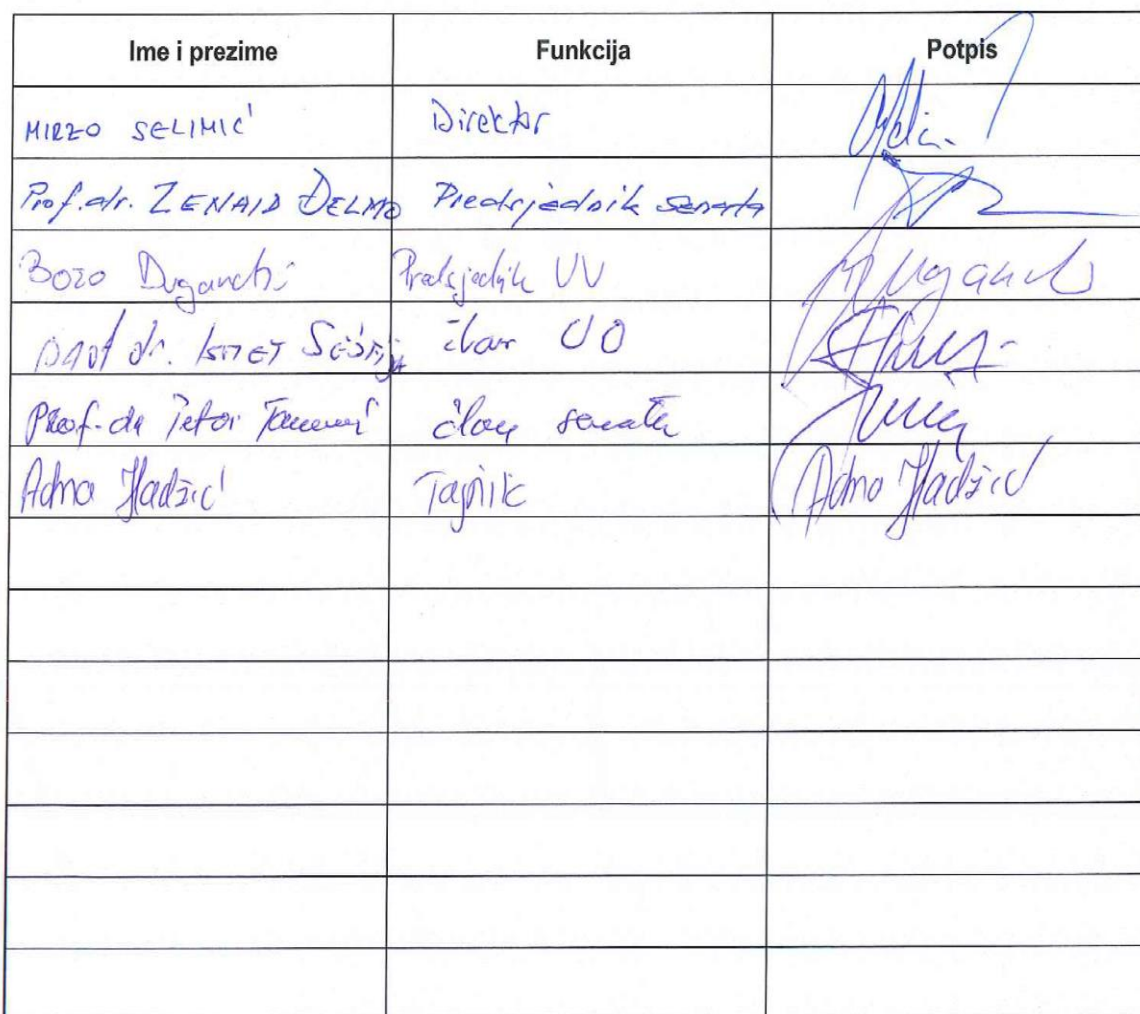 Ime i prezime Funkcija Potpis
MIRZO SELIMIĆ Direktor
Prof.dr. ZENAID ĐELMO Predsjednik senata
Bozo Predsjednik UV
dr. ISMET član UO
Prof. dr Petar član senata
Adna Hadžić Tajnik Adna Hadžić